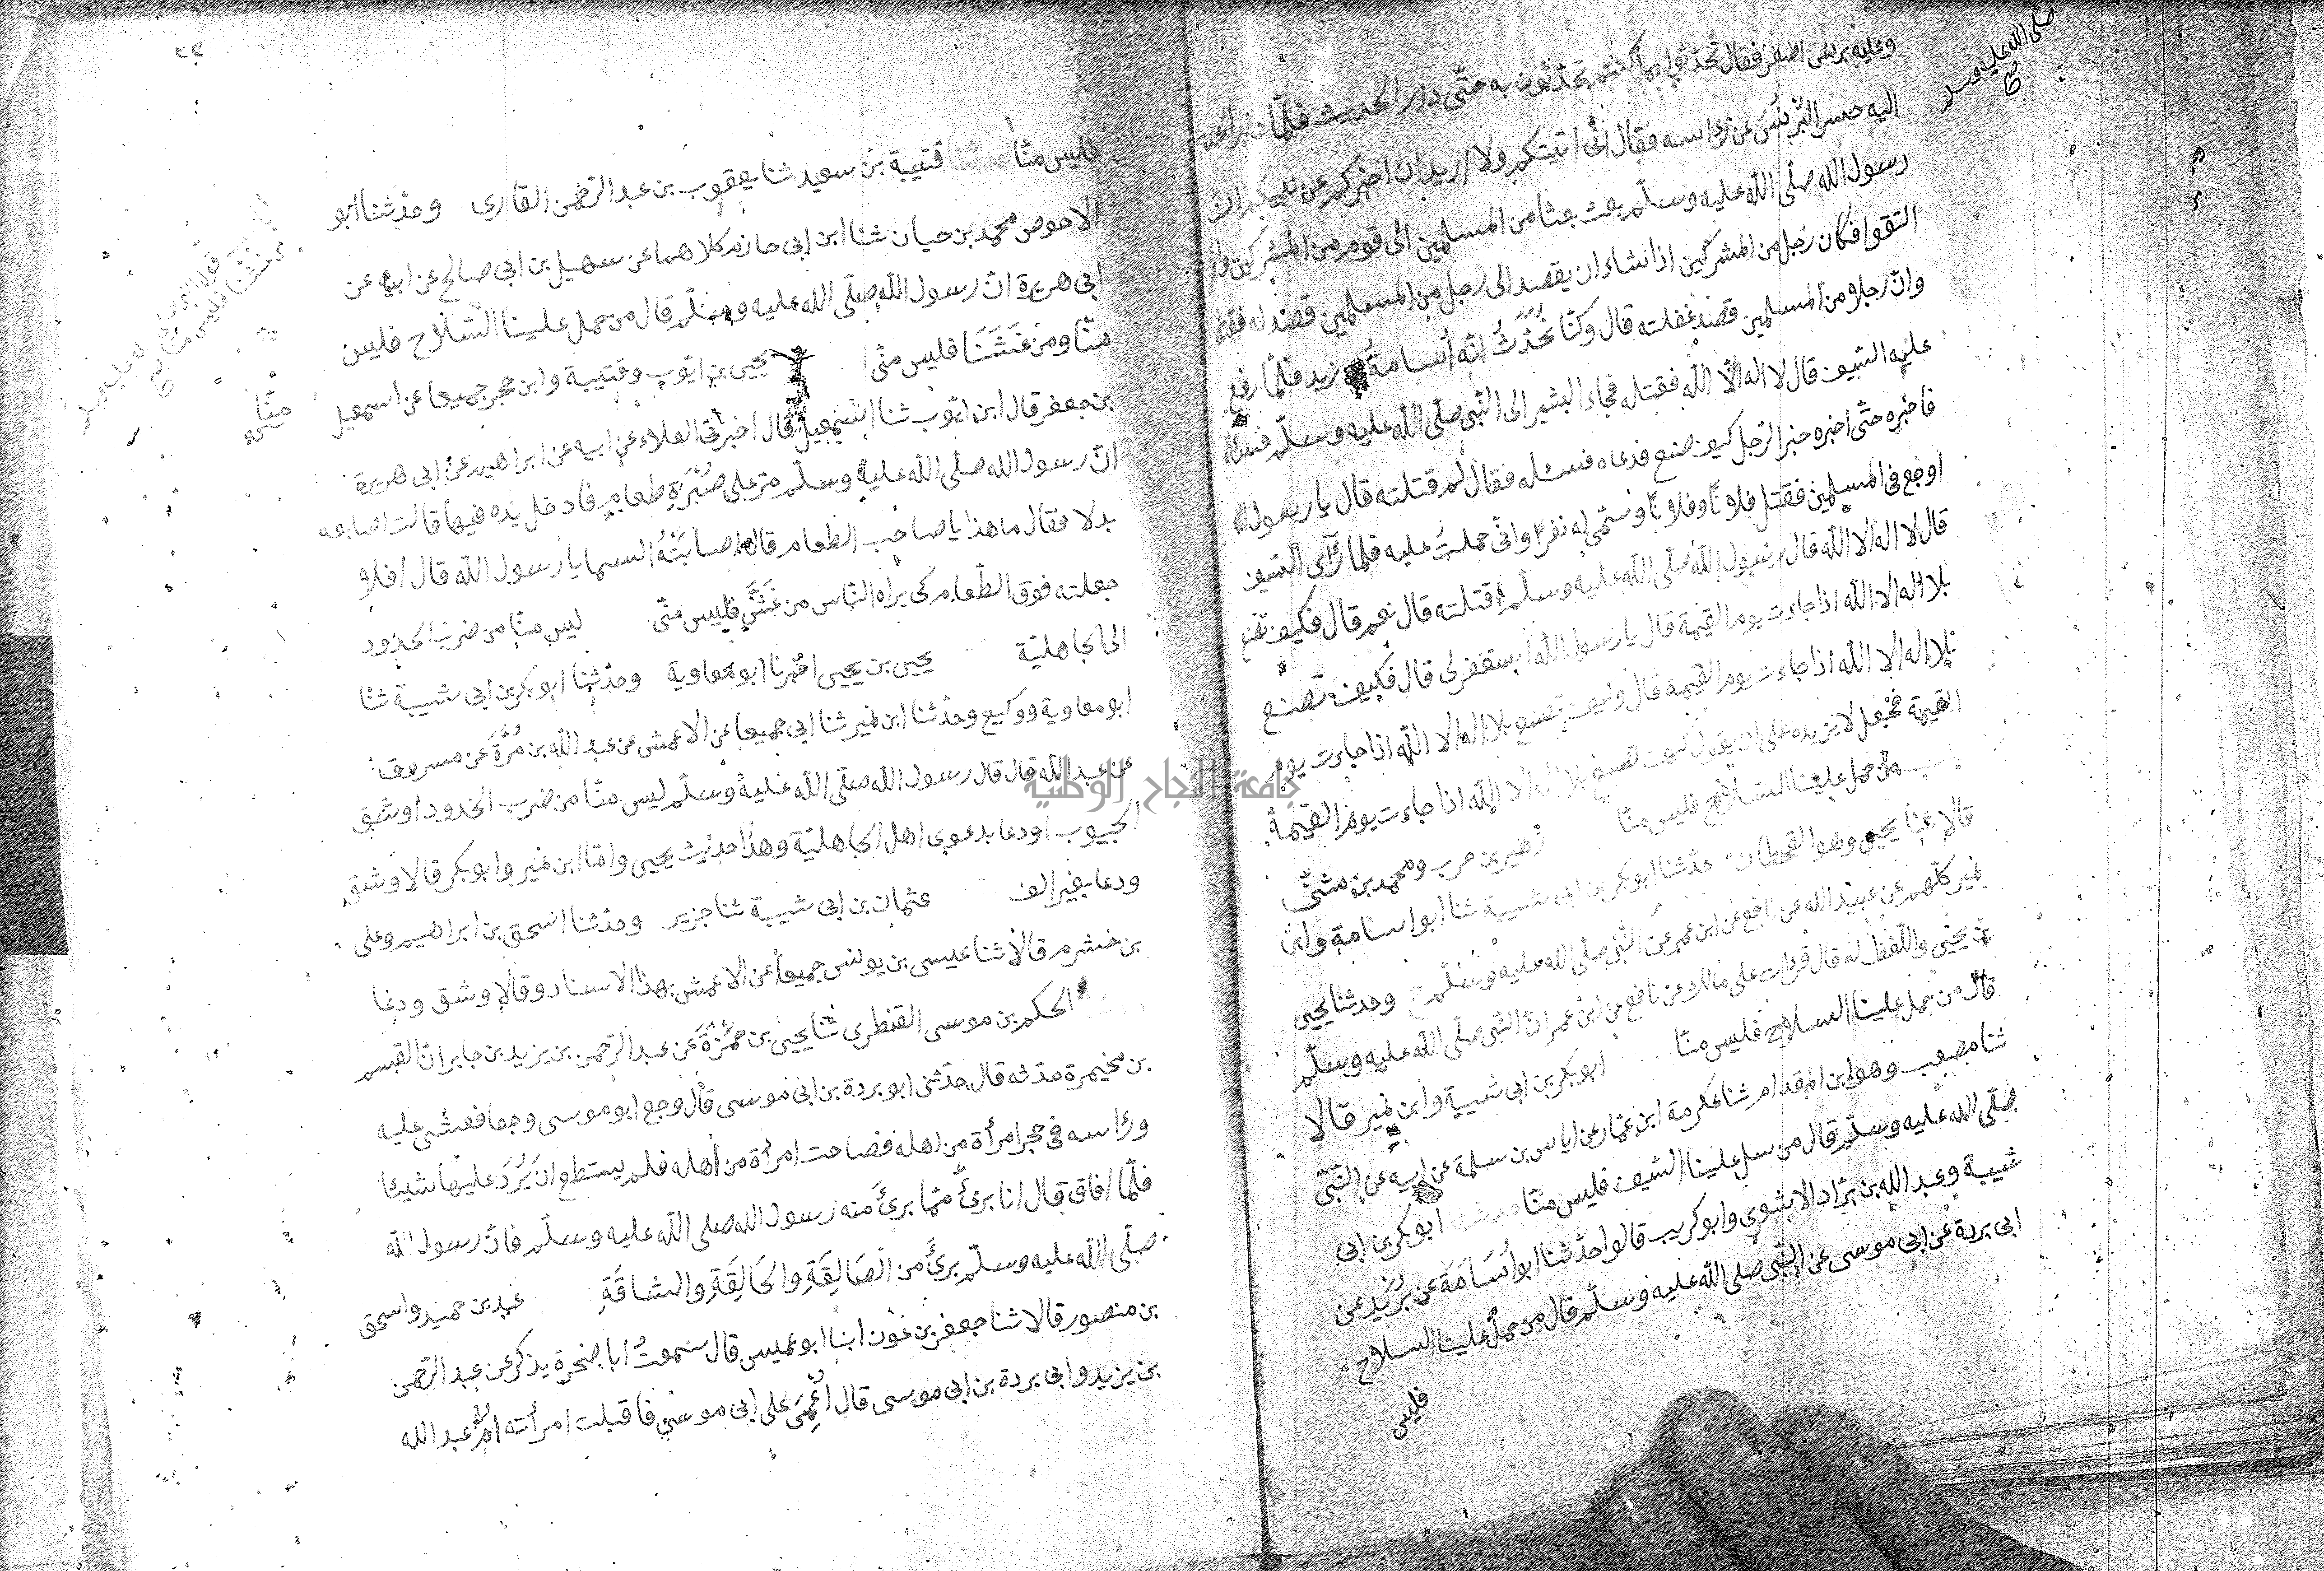 صلى الله عليه وسلم
صح
وعليه برنس اصفر فقال تحدثوا بما كنتم تحدثون به حتى دار الحديث فلما دار الحديث
اليه حسر البرنس عن راسه فقال انى اتيتكم ولا اريد ان اخبركم عن نبيكم ان
رسول الله صلى الله عليه وسلم بعث بعثا من المسلمين الى قوم من المشركين وانهم
التقوا فكان رجل من المشركين اذا شاء ان يقصد الى رجل من المسلمين قصد له فقتله
وان رجلا من المسلمين قصد غفلته قال وكنا نُحَدَّثُ انه أسامةُ بن زيد فلما رفع
عليه السيف قال لا اله الا الله فقتله فجاء البشير الى النبى صلى الله عليه وسلم فسئله
فاخبره حتى اخبره خبر الرجل كيف صنع فدعاه فسئله فقال لم قتلته قال يا رسول الله
اوجع فى المسلمين فقتل فلانًا وفلانًا وسمى له نفرًا وانى حملتُ عليه فلما رآى السيف
قال لا اله الا الله قال رسول الله صلى الله عليه وسلم اقتلته قال نعم قال فكيف تصنع
بلا اله الا الله اذا جاءت يوم القيمة قال يا رسول الله استغفر لى قال فكيف تصنع
بلا اله الا الله اذا جاءت يوم القيمة قال وكيف تصنع بلا اله الا الله اذا جاءت يوم
القيمة فجعل لا يزيده على ان يقول كيف تصنع بلا اله الا الله اذا جاءت يوم القيمة
باب من حمل علينا السلاح فليس منا زهير بن حرب ومحمد بن مثنى
قالا ثنا يحيى وهو القطان حدثنا ابو بكر بن ابى شيبة ثنا ابو اسامة وابن
نمير كلهم عن عبيد الله عن نافع عن ابن عمر عن النبى صلى الله عليه وسلم وحدثنا يحيى
بن يحيى واللفظ له قال قرات على مالك عن نافع عن ابن عمر ان النبى صلى الله عليه وسلم
قال من حمل علينا السلاح فليس منا ابو بكر بن ابى شيبة وابن نمير قالا
ثنا مصعب وهو ابن المقدام ثنا عكرمة ابن عمار عن اياس بن سلمة عن ابيه عن النبى
صلى الله عليه وسلم قال من سل علينا السيف فليس منا حدثنا ابو بكر بن ابى
شيبة وعبد الله بن براد الاشعرى وابو كريب قالوا حدثنا ابو أُسَامَةَ عن بُرَيْد عن
ابى بردة عن ابى موسى عن النبى صلى الله عليه وسلم قال من حمل علينا السلاح
فليس
٢٣
فليس منا حدثنا قتيبة بن سعيد ثنا يعقوب بن عبد الرحمن القارى وحدثنا ابو
الاحوص محمد بن حيان ثنا ابن ابى حازم كلاهما عن سهيل بن ابى صالح عن ابيه عن
ابى هريرة ان رسول الله صلى الله عليه وسلم قال من حمل علينا السلاح فليس
منا ومن غَشَّنَا فليس منى يحيى بن ايوب وقتيبة وابن حجر جميعا عن اسمعيل
بن جعفر قال ابن ايوب ثنا اسمعيل قال اخبرنى العلاء عن ابيه عن ابراهيم عن ابى هريرة
ان رسول الله صلى الله عليه وسلم مر على صُبْرَةِ طعامٍ فادخل يده فيها قالت اصابعه
بدلا فقال ما هذا يا صاحب الطعام قال اصابَتْهُ السما يا رسول الله قال افلا
جعلته فوق الطعام كى يراه الناس من غَشَّ فليس منى ليس منا من ضرب الخدود
الى الجاهلية يحيى بن يحيى اخبرنا ابو معاوية وحدثنا ابو بكر بن ابى شيبة ثنا
ابو معاوية ووكيع وحدثنا ابن نمير ثنا ابى جميعا عن الاعمش عن عبد الله بن مُرَّةَ عن مسروق
عن عبد الله قال قال رسول الله صلى الله عليه وسلم ليس منا من ضرب الخدود او شق
الجيوب او دعا بدعوى اهل الجاهلية وهذا حديث يحيى واما ابن نمير وابو بكر قالا وشق
ودعا بغير الف عثمان بن ابى شيبة ثنا جرير وحدثنا اسحق بن ابراهيم وعلى
بن خشرم قالا ثنا عيسى بن يونس جميعا عن الاعمش بهذا الاسناد وقالا وشق ودعا
الحكم بن موسى القنطرى ثنا يحيى بن حَمْزَةَ عن عبد الرحمن بن يزيد بن جابر ان القسم
بن مخيمرة حدثه قال حدثنى ابو بردة بن ابى موسى قال وجع ابو موسى وجعا فغشى عليه
وراسه فى حجر امرأة من اهله فصاحت امرأة من اهله فلم يستطع ان يَرُدَ عليها شيئا
فلما افاق قال انا برئ مما برئ منه رسول الله صلى الله عليه وسلم فان رسول الله
صلى الله عليه وسلم برئ من الصَالِقَةِ والحَالِقَةِ والشاقَةِ عبد بن حميد واسحق
بن منصور قالا ثنا جعفر بن عون انا ابو عميس قال سمعتُ ابا صخرة يذكر عن عبد الرحمن
بن يزيد وابى بردة بن ابى موسى قال أُغْمِىَ على ابى موسى فاقبلت امرأته ام عبد الله
باب قول النبى صلى الله عليه وسلم
من غشنا فليس منا
صح
منا
جامعة النجاح الوطنية